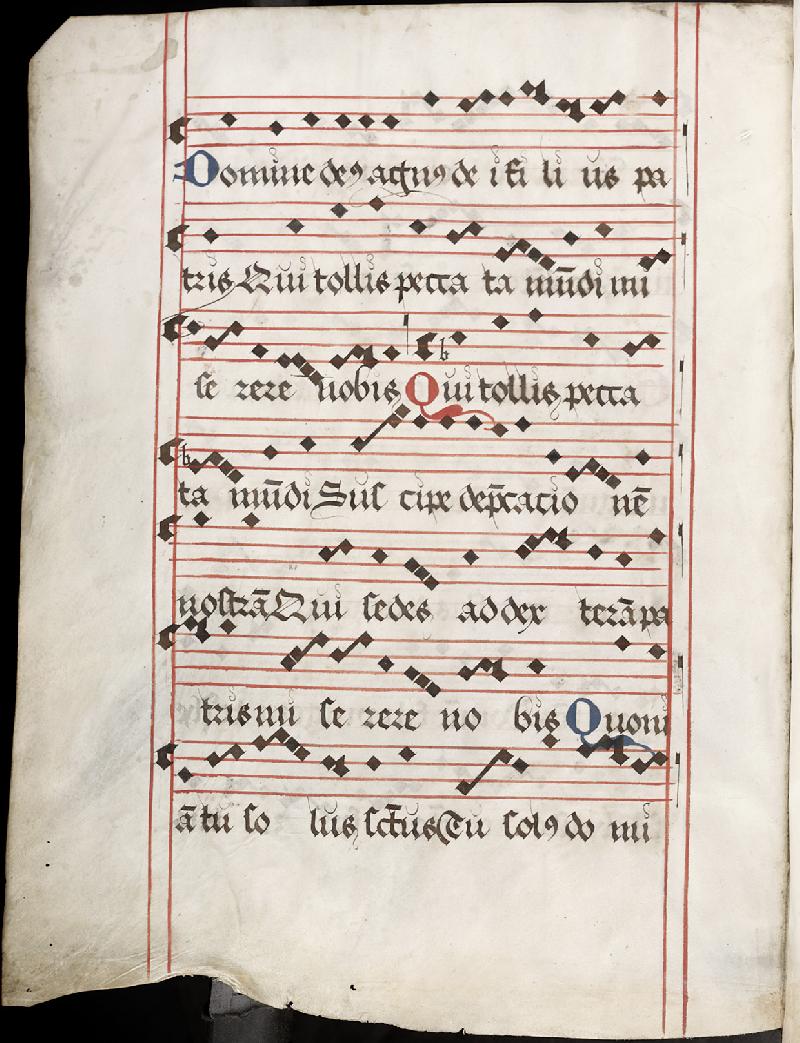 Domine deꝰ agnꝰ de i fi li us pa
tris Qui tollis pecca ta mūdi mi
se rere nobis Qui tollis pecca
ta mūdi Sus cipe dep̄cacio nē
nostrā Qui sedes ad dex terā pa
tris mi se rere no bis Quoni
ā tu so lus sctus Tu solꝰ do mi